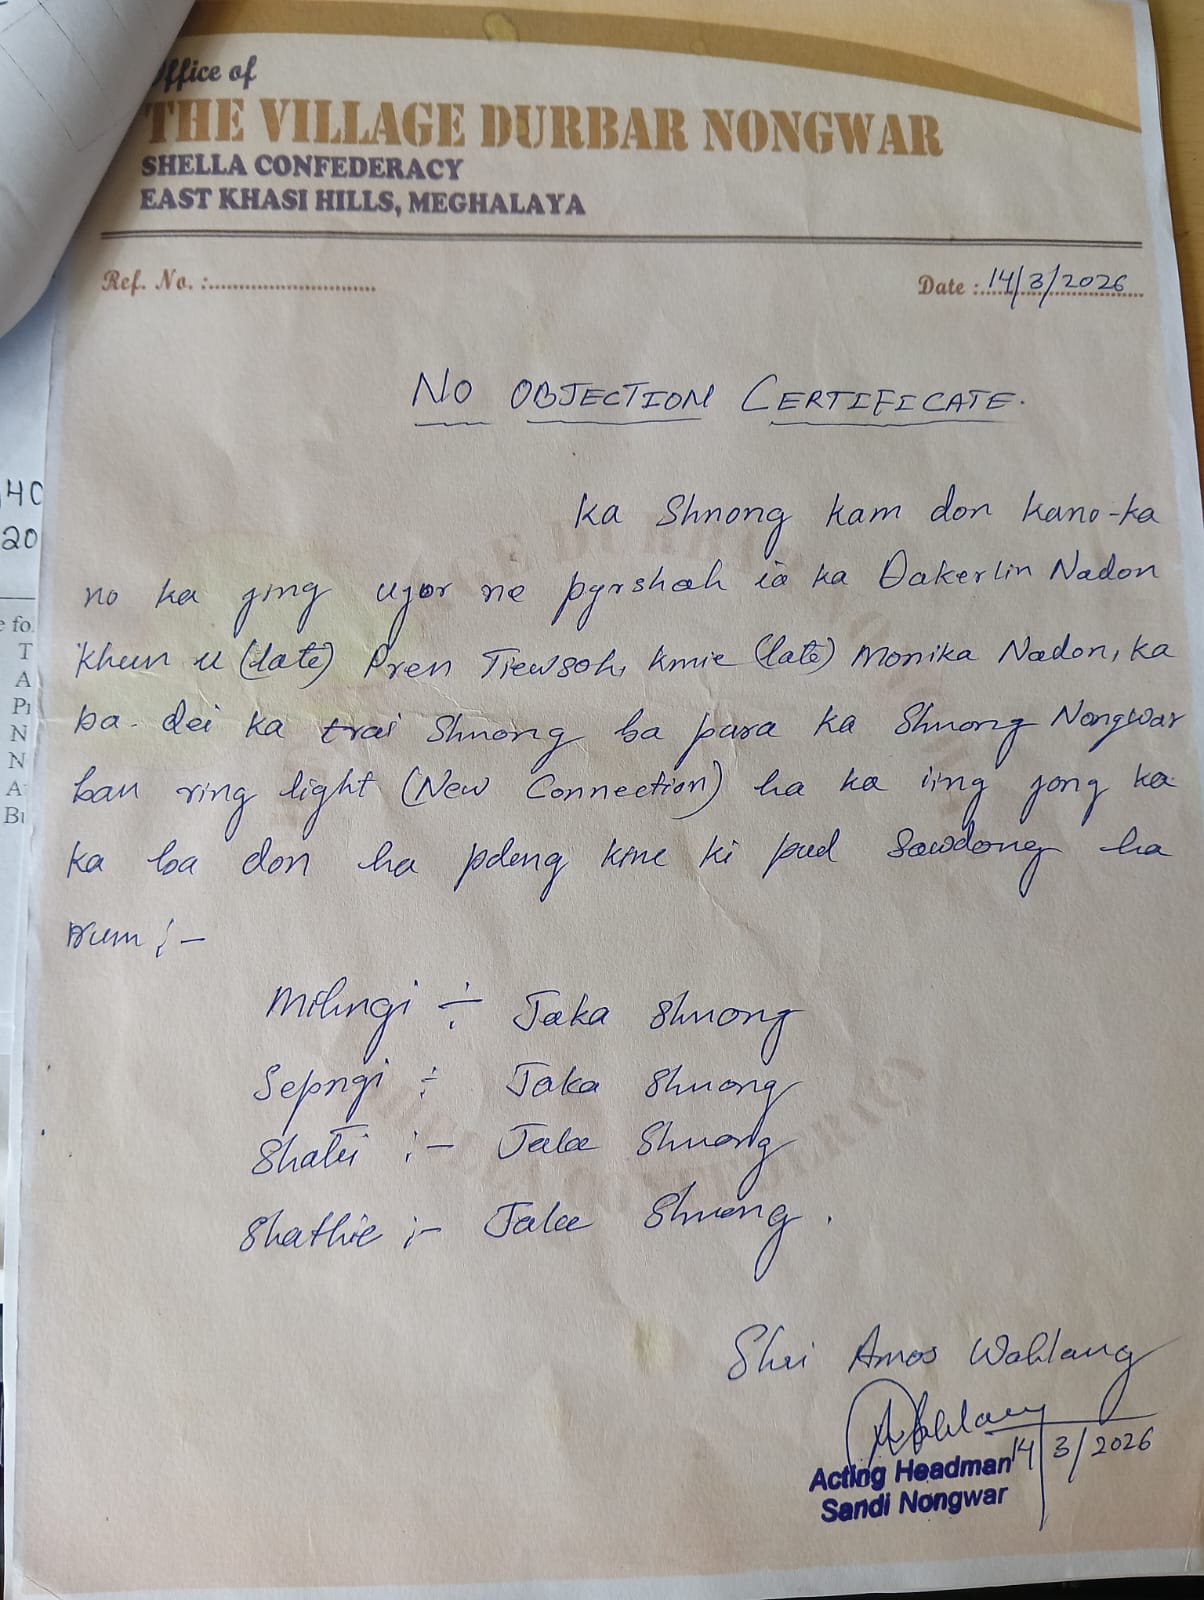 Office of
THE VILLAGE DURBAR NONGWAR
SHELLA CONFEDERACY
EAST KHASI HILLS, MEGHALAYA
Ref. No. :............................
Date : 14/3/2026
NO OBJECTION CERTIFICATE.
Ka Shnong kam don kano-ka
no ka jing ujor ne pyrshah ia ka Dakerlin Nadon
Khun u (late) Pren Tiewsoh, kmie (late) Monika Nadon, ka
ba dei ka trai Shnong ba para ka Shnong Nongwar
ban ring light (New Connection) ha ka iing jong ka
ka ba don ha pdeng kine ki pud Sawdong ha
rum ;-
Mihngi ÷ Jaka Shnong
Sepngi ÷ Jaka Shnong
Shatei ;- Jaka Shnong
Shathie ;- Jaka Shnong.
Shri Amos Wahlang
14/3/2026
Acting Headman
Sandi Nongwar
40
20
e fo
T
A
N
N
A